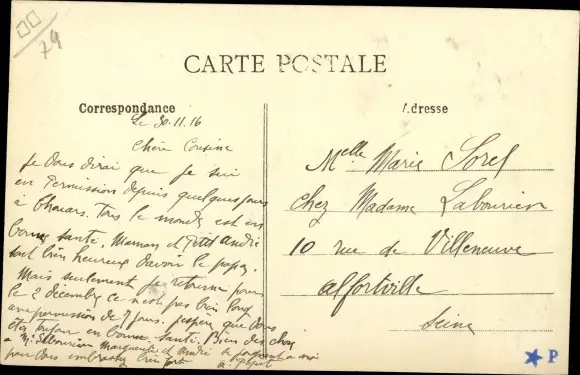 79
CARTE POSTALE
Correspondance
Adresse
Le 30.11.16
Chère Cousine
Je vous dirai que je suis
en Permission depuis quelques jours
à Thouars. Tous le monde est en
bonne santé. Maman et Petit André
sont bien heureux davoir le papa.
Mais seulement je retourne pour
le 2 décembre ce nest pas bien long
une permission de 7 jours. jespère que vous
êtes toujour en bonne santé. Bien des choses
a M. Labourien Marguerite et André se joignent a moi
pour vous embrasser bien fort
Melle Marie Sorel
chez Madame Labourien
10 rue de Villeneuve
alfortville
Seine
P